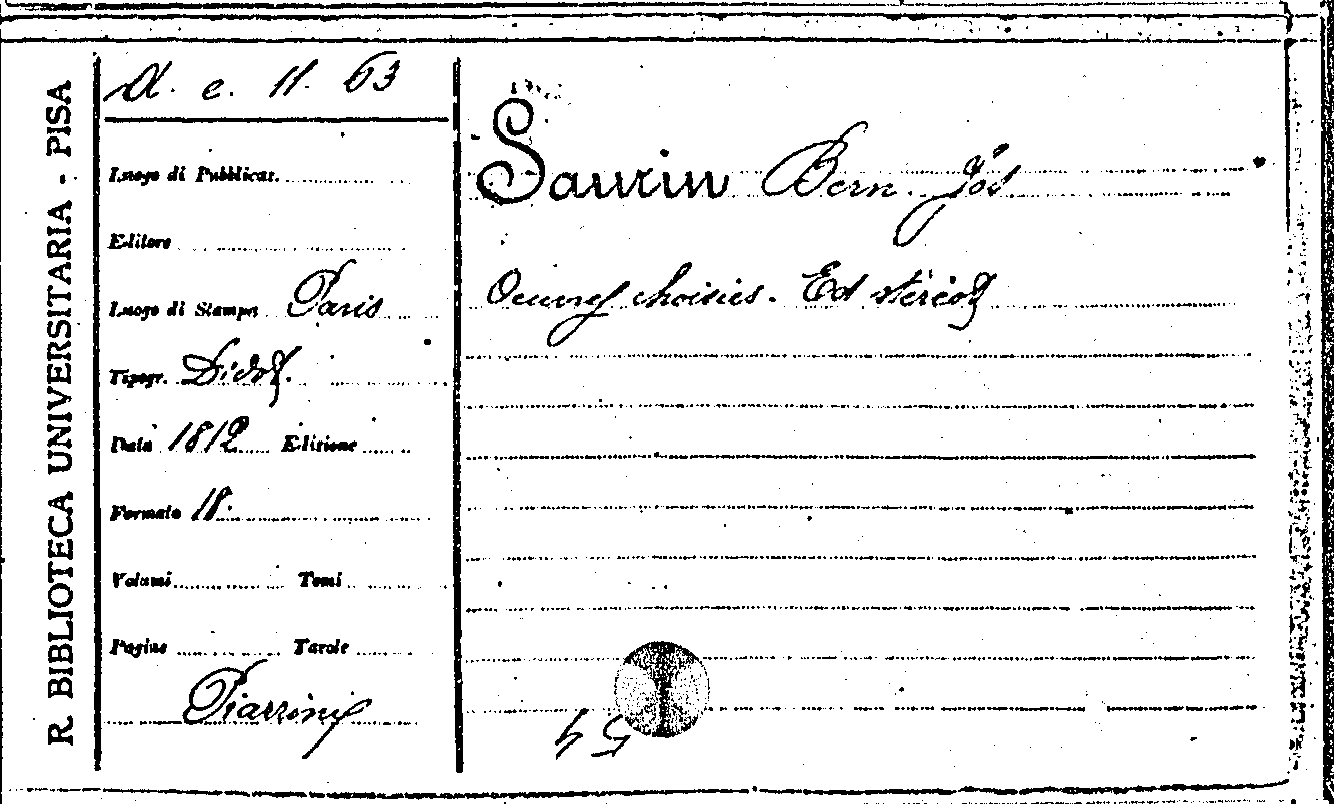 R BIBLIOTECA UNIVERSITARIA - PISA
A. e. 11. 63
Luogo di Pubblicaz.
Editore
Luogo di Stampa Paris
Tipogr. Didot.
Data 1812 Edizione
Formato 18.
Volumi Tomi
Pagine Tavole
Piazzini
Saurin Bern. Jos
Oeuvres choisies. Ed stéréot
54